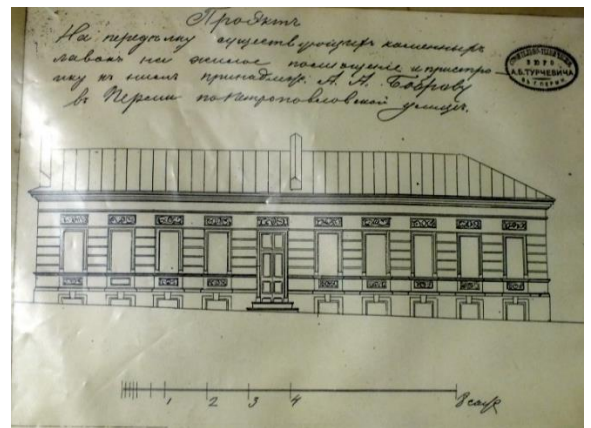 Проэктъ
На передѣлку существующихъ каменныхъ
лавокъ на жилое помѣщеніе и пристро-
йку къ нимъ принадлеж. А. А. Боброву
въ Перми по Петропавловской улицѣ.
БЮРО
А.Б. ТУРЧЕВИЧА
1 2 3 4 8 саж